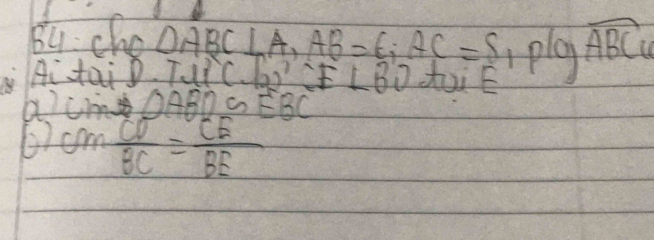 B4: cho ΔABC ⊥ A, AB = 6; AC = 8, p/g ABC
AC tại D. Từ C kẻ CE ⊥ BD tại E
a) cm ΔABD ∽ EBC
b) cm CD/BC = CE/BE